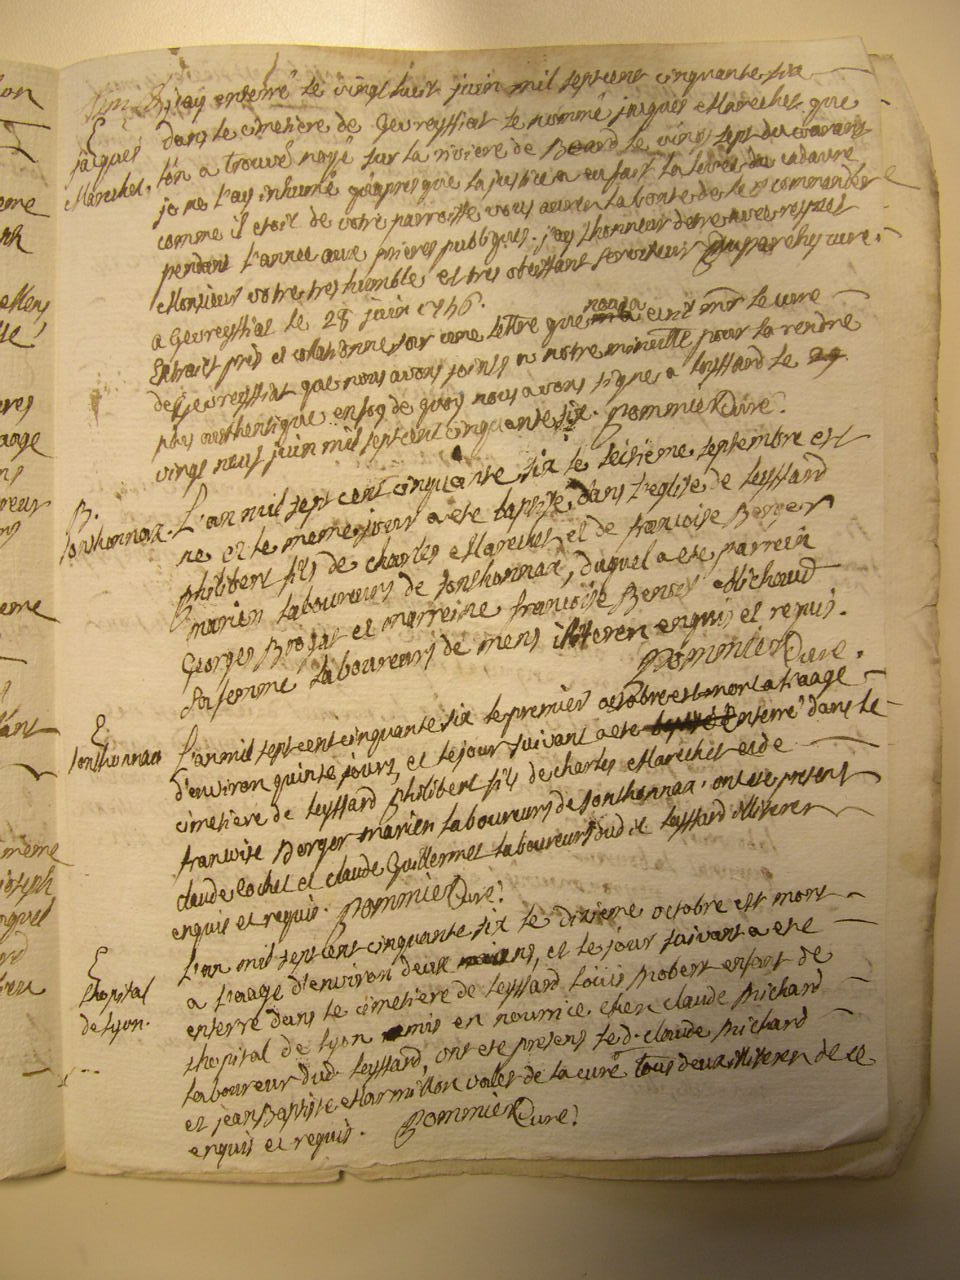 j'ay enterré le vingt huit juin mil sept cent cinquante six
E
jacques
Marechet.
dans le cimetiere de Gevreyssiat le nommé jacques Marechet que
l'on a trouvé noyé sur la riviere de Beard le vingt sept du courant
je ne l'ay inhumé qu'apres que la justice a eu fait la levée du cadavre
comme il etoit de votre parroisse vous aurez la bonté de le recommander
pendant l'année aux prieres publiques. j'ay l'honneur d'etre avec respect
Monsieur votre tres humble et tres obeissant serviteur curé.
a Gevreyssiat le 28 juin 1756.
Extrait pris et collationné sur une lettre que nous a ecrit mr le curé
de Gevreyssiat que nous avons joints a notre minutte pour la rendre
plus authentique en foy de quoy nous avons signé a leyssard le
vingt neuf juin mil sept cent cinquante six. Pommier Curé.
B.
sonthonnax.
L'an mil sept cent cinquante six le seizieme septembre est
né et le meme jour a eté baptizé dans l'eglise de leyssard
philibert fils de charles Marechet et de françoise Berger
mariés laboureurs de sonthonnax, duquel a eté parrein
Georges Brojat et marreine françoise Benoit Michaud
sa femme laboureurs de mens illiterez enquis et requis.
Pommier Curé.
E
sonthonnax
L'an mil sept cent cinquante six le premier octobre est mort a l'aage
d'environ quinze jours, et le jour suivant a eté enterré dans le
cimetiere de leyssard philibert fils de charles Marechet et de
françoise Berger mariés laboureurs de sonthonnax. ont eté presents
claude lochet et claude Guillermet laboureurs dudit leyssard illiterez
enquis et requis. Pommier Curé.
E
l'hopital
de lyon.
L'an mil sept cent cinquante six le dixieme octobre est mort
a l'aage d'environ deux ans, et le jour suivant a eté
enterré dans le cimetiere de leyssard louis Robert enfant de
l'hopital de lyon mis en nourrice chez claude Michard
laboureur dud. leyssard, ont eté presens led. claude Michard
et jean Baptiste Marmillon valet de la cure tous deux illiterez de ce
enquis et requis. Pommier Curé.